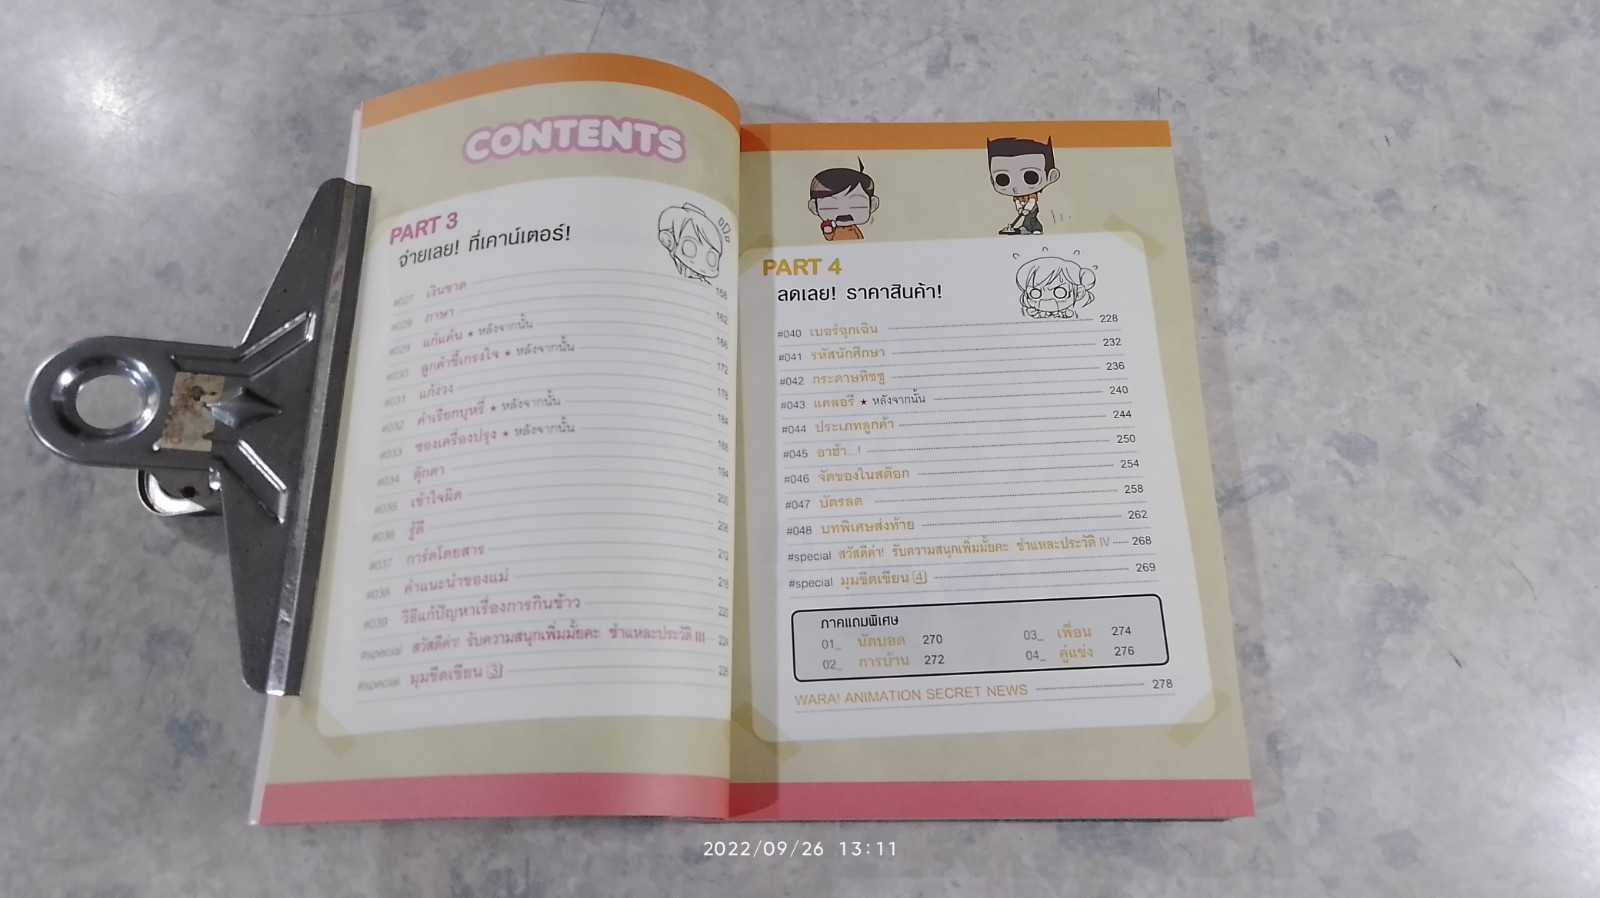 CONTENTS
PART 3
จ่ายเลย! ที่เคาน์เตอร์!
#027 เงินขาด 158
#028 ภาษา 162
#029 แก้แค้น ★ หลังจากนั้น 166
#030 ลูกค้าขี้เกรงใจ ★ หลังจากนั้น 172
#031 แก้ง่วง 178
#032 คำเรียกบุหรี่ ★ หลังจากนั้น 184
#033 ซองเครื่องปรุง ★ หลังจากนั้น 188
#034 ตุ๊กตา 194
#035 เข้าใจผิด 200
#036 รู้ดี 206
#037 การ์ดโดยสาร 212
#038 คำแนะนำของแม่ 216
#039 วิธีแก้ปัญหาเรื่องการกินข้าว 220
#special สวัสดีค่า! รับความสนุกเพิ่มมั้ยคะ ชำแหละประวัติ III 224
#special มุมขีดเขียน 3 226
PART 4
ลดเลย! ราคาสินค้า!
#040 เบอร์ฉุกเฉิน 228
#041 รหัสนักศึกษา 232
#042 กระดาษทิชชู 236
#043 แคลอรี ★ หลังจากนั้น 240
#044 ประเภทลูกค้า 244
#045 อาฮ้า...! 250
#046 จัดของในสต๊อก 254
#047 บัตรลด 258
#048 บทพิเศษส่งท้าย 262
#special สวัสดีค่า! รับความสนุกเพิ่มมั้ยคะ ชำแหละประวัติ IV 268
#special มุมขีดเขียน 4 269
ภาคแถมพิเศษ
01_ นัดบอด 270 03_ เพื่อน 274
02_ การบ้าน 272 04_ คู่แข่ง 276
WARA! ANIMATION SECRET NEWS 278
2022/09/26 13:11